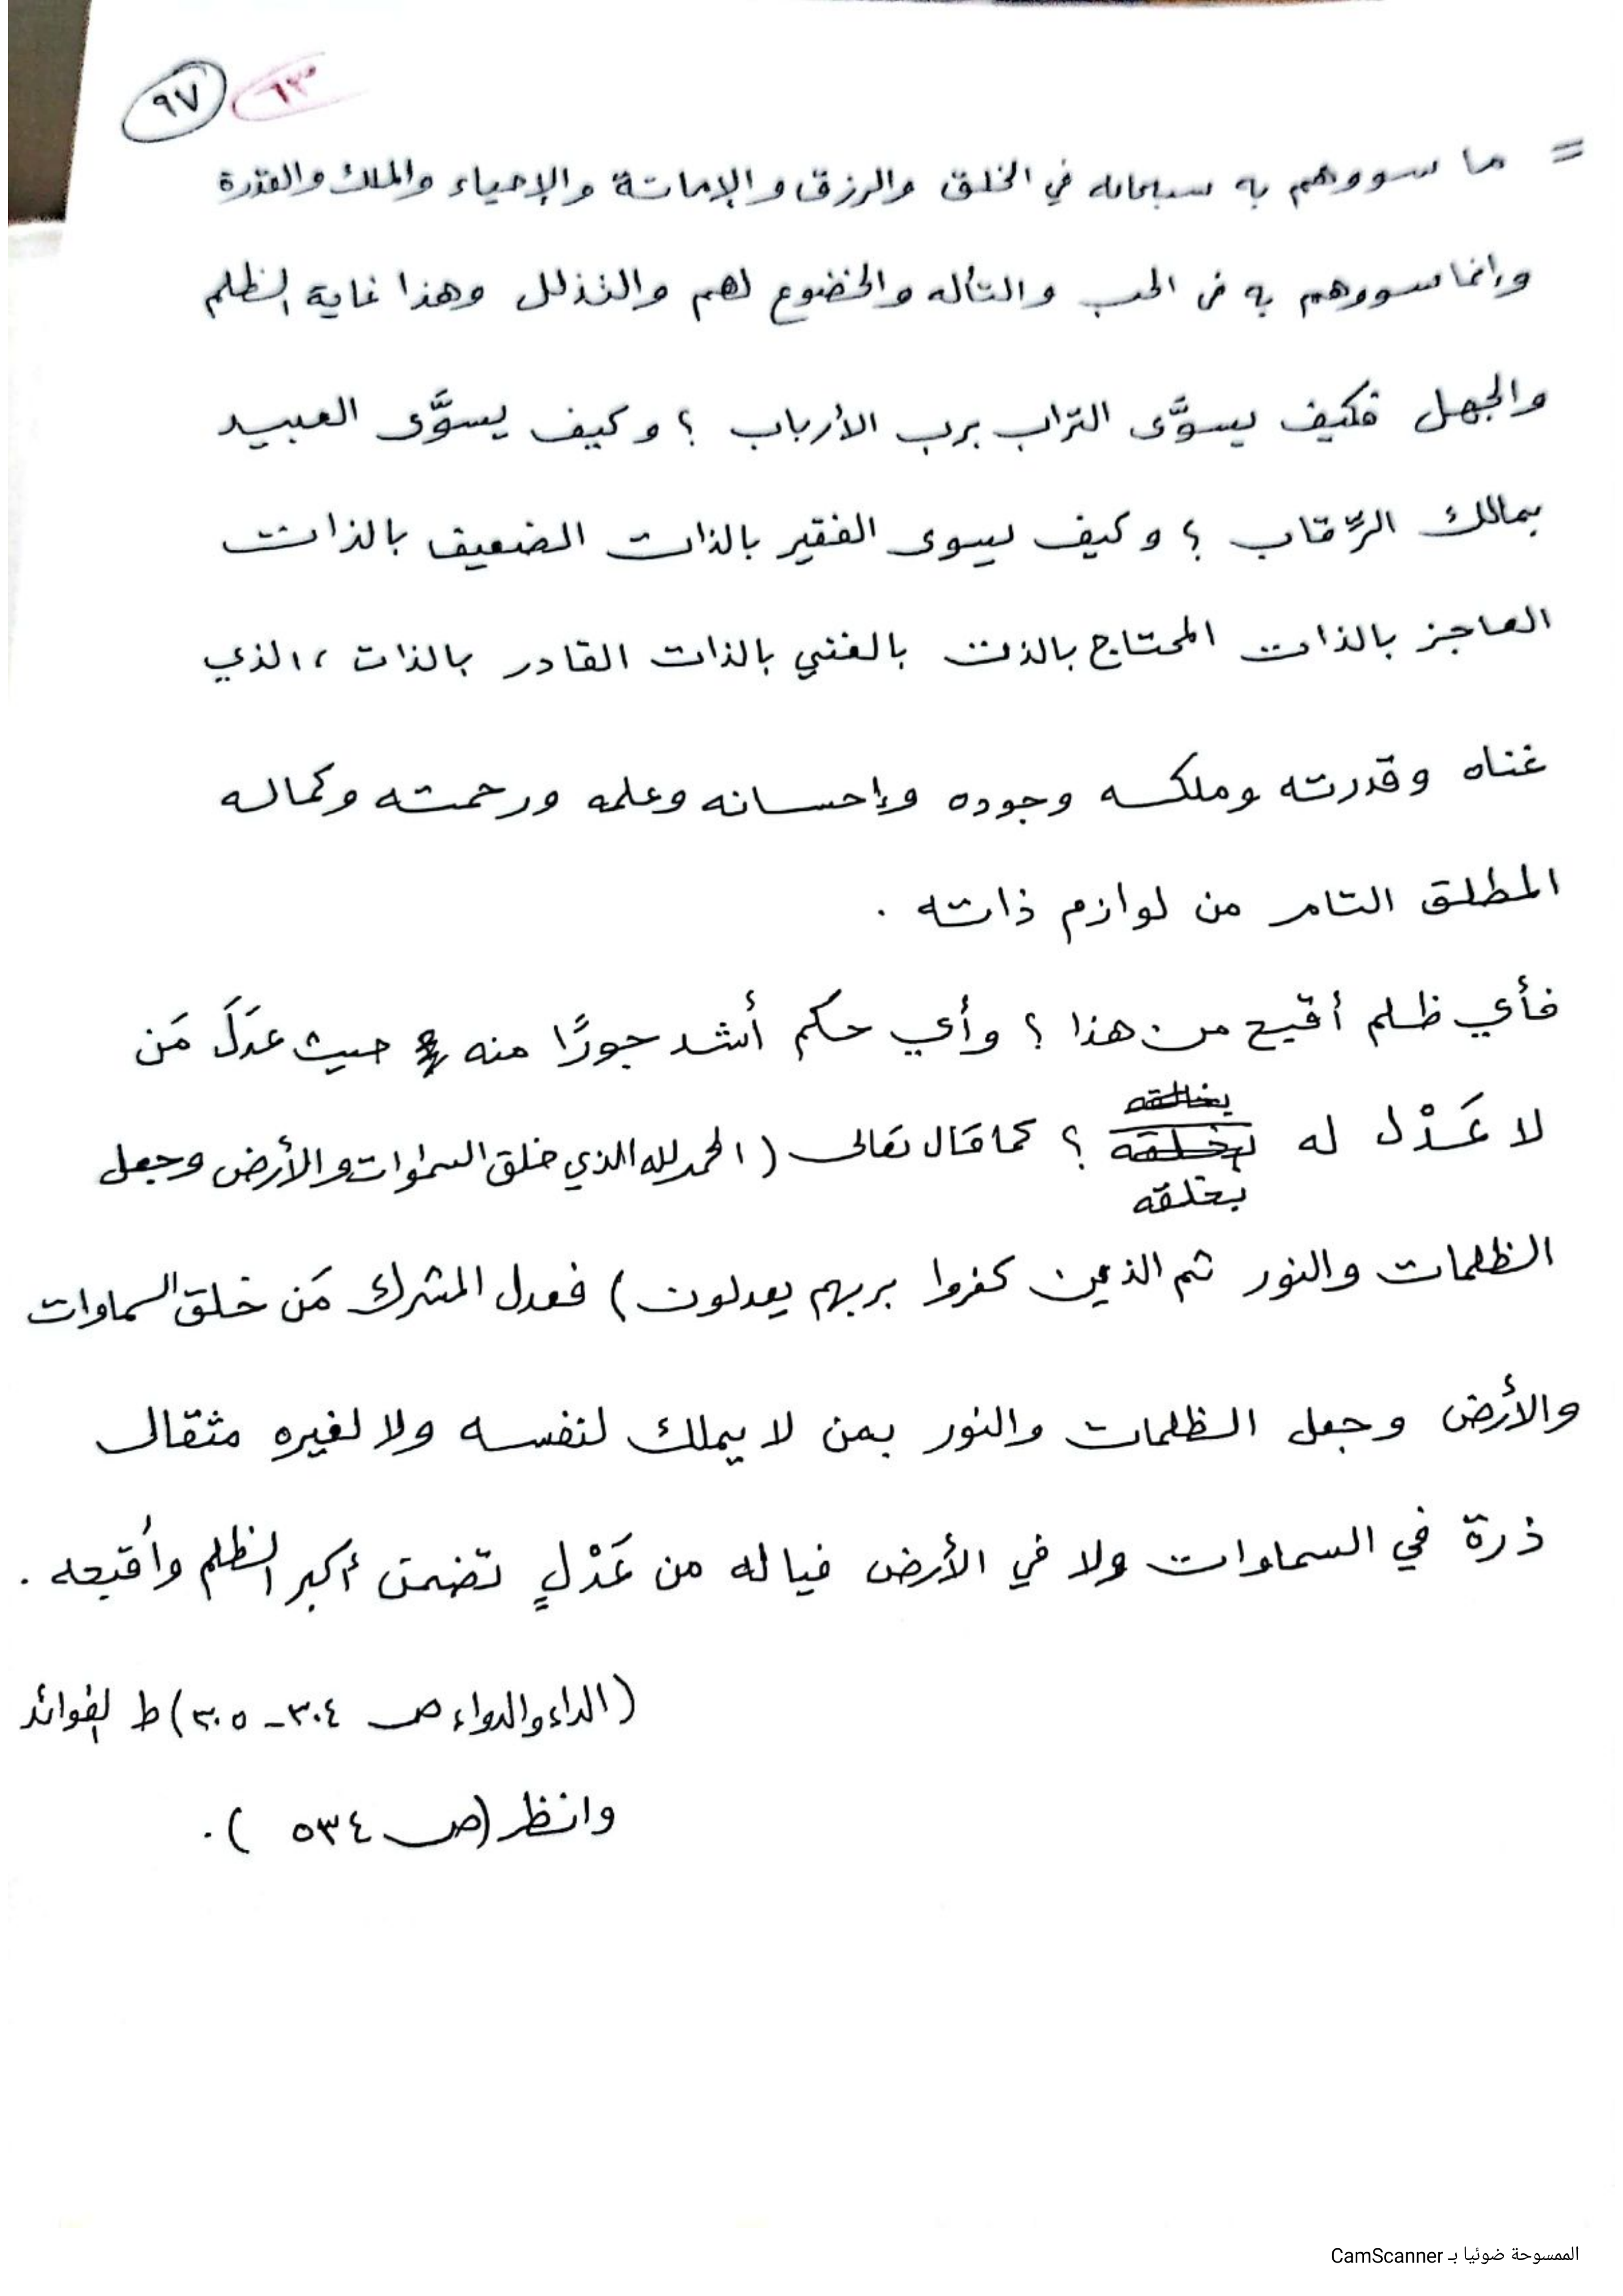 ٩٧ ٦٣
= ما سووهم به سبحانه في الخلق والرزق والإماتة والإحياء والملك والقدرة
وإنما سووهم به في الحب والتأله والخضوع لهم والتذلل وهذا غاية الظلم
والجهل فكيف يسوَّى التراب برب الأرباب ؟ وكيف يسوَّى العبيد
بمالك الرِّقاب ؟ وكيف يسوى الفقير بالذات الضعيف بالذات
العاجز بالذات المحتاج بالذت بالغني بالذات القادر بالذات ، الذي
غناه وقدرته وملكه وجوده وإحسانه وعلمه ورحمته وكماله
المطلق التام من لوازم ذاته .
فأي ظلم أقبح من هذا ؟ وأي حكم أشد جورًا منه حيث عدَلَ مَن
لا عَدْل له بخلقه ؟ كما قال تعالى ( الحمد لله الذي خلق السمٰوات والأرض وجعل
الظلمات والنور ثم الذين كفروا بربهم يعدلون ) فعدل المشرك مَن خلق السماوات
والأرض وجعل الظلمات والنور بمن لا يملك لنفسه ولا لغيره مثقال
ذرة في السماوات ولا في الأرض فيا له من عَدْلٍ تضمن أكبر الظلم وأقبحه .
(الداء والدواء ص ٣٠٤ - ٣٠٥) ط الفوائد
وانظر (ص ٥٣٤ ) .
الممسوحة ضوئيا بـ CamScanner